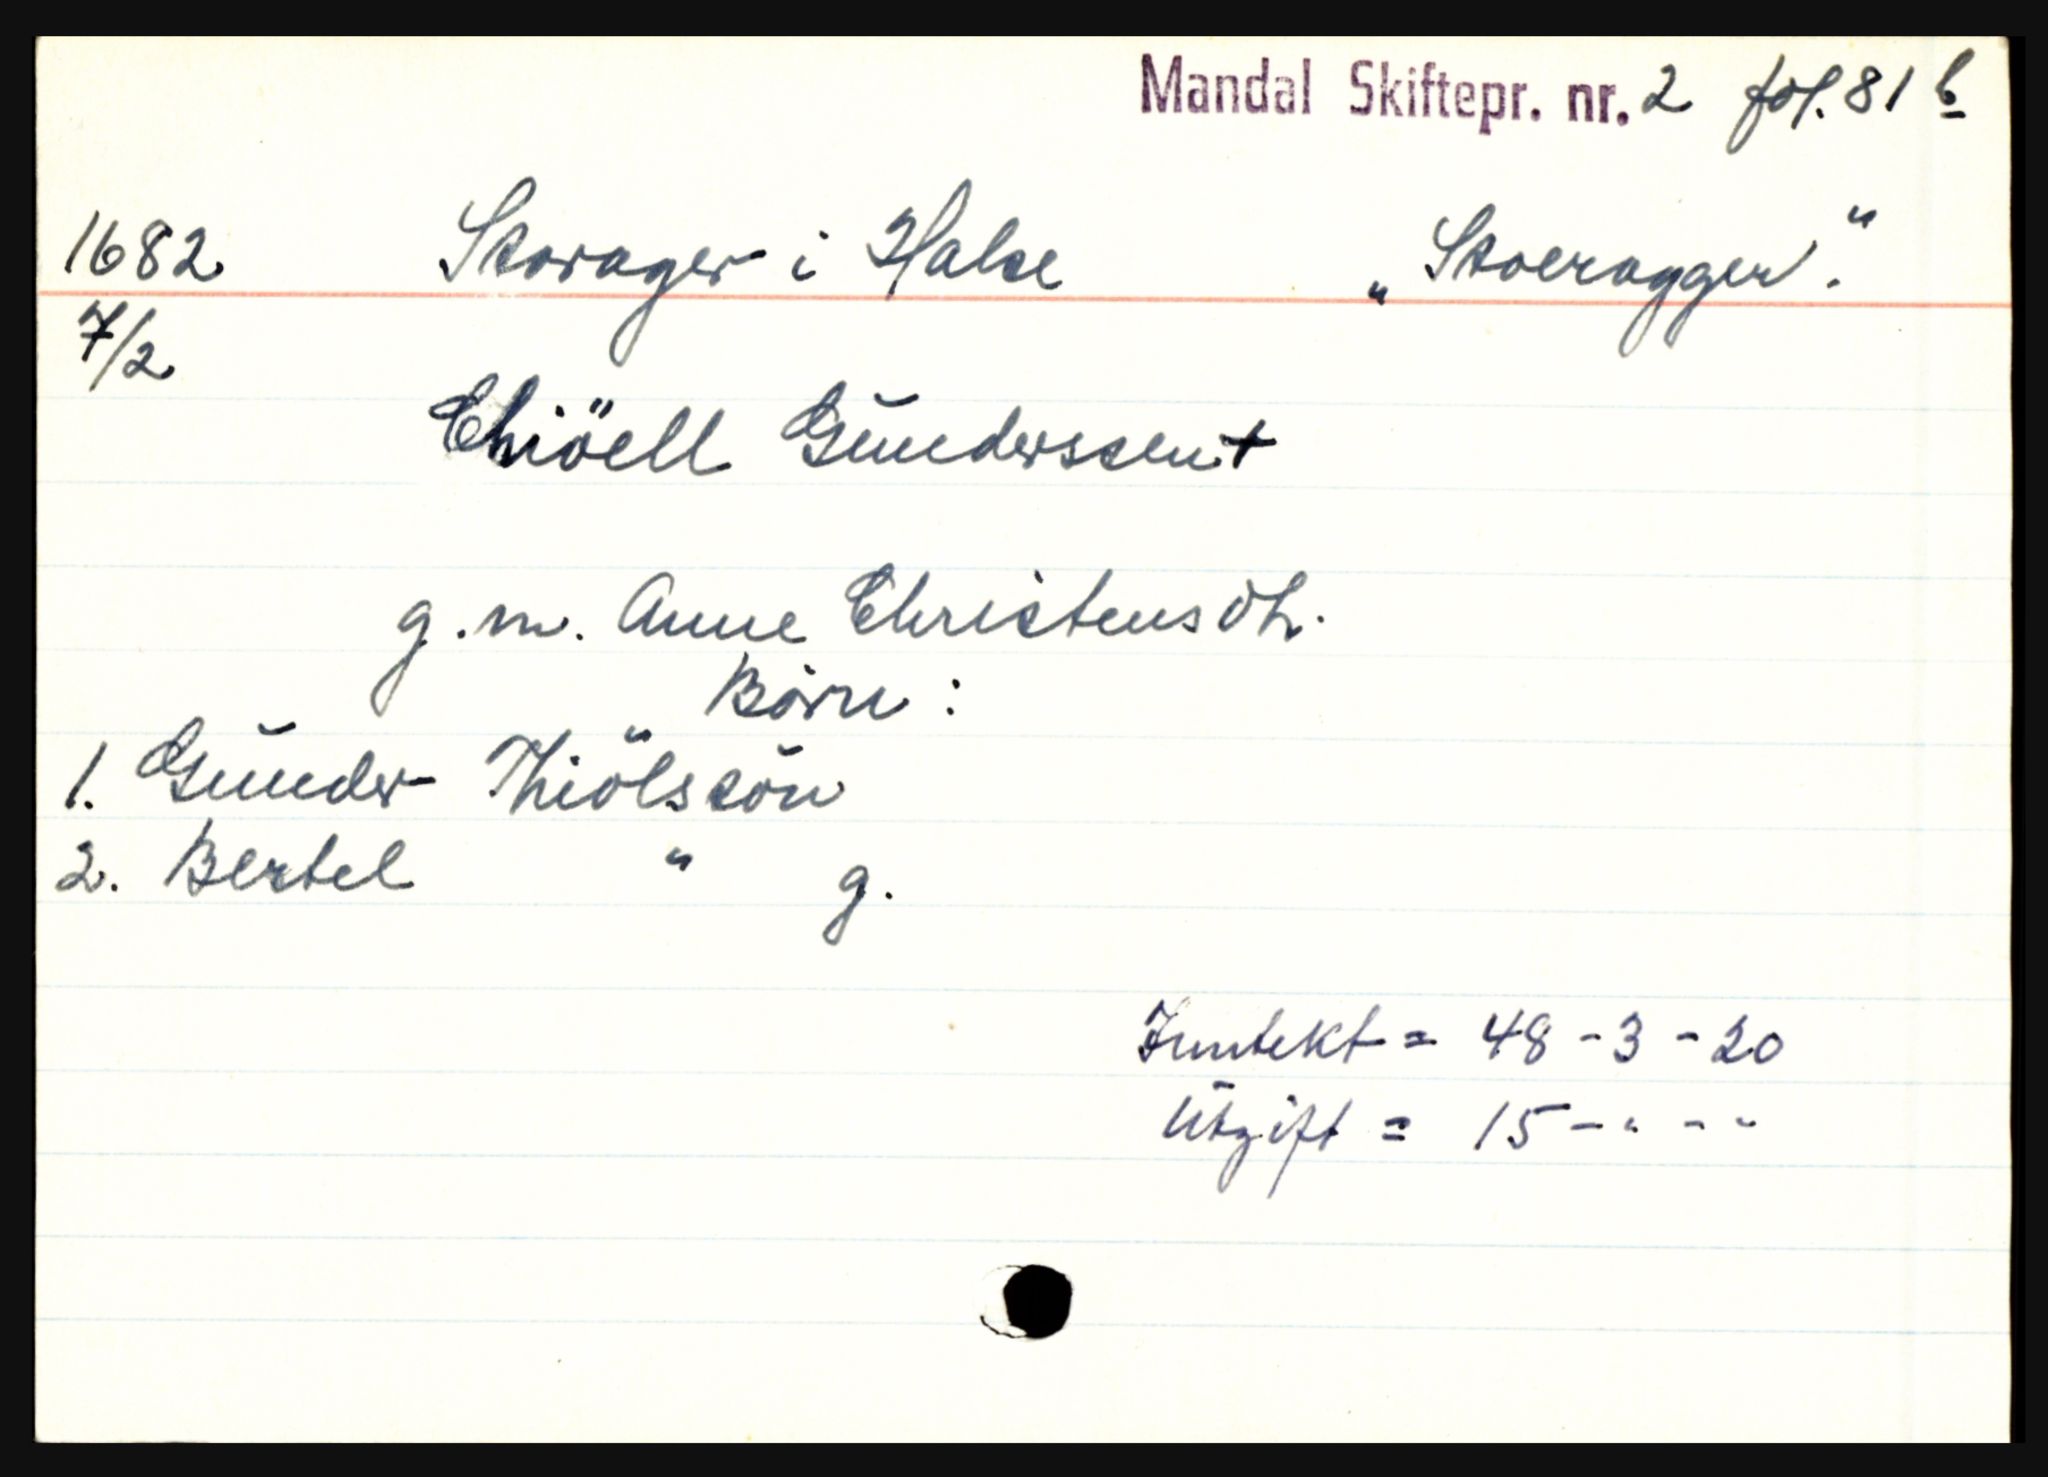 Mandal Skiftepr. nr. 2 fol. 81 b
1682 Storager i Halse „Stoeragger."
7/2
Chiöell Gŭnderssen +
g. m. Anne Christensdh.
Börn :
1. Gŭnder Thiölssön
2. Bertel " g.
Inntekt = 48 - 3 - 20
Utgift = 15 - " - "